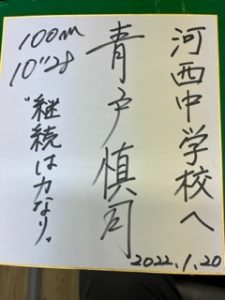 河西中学校へ
青戸慎司
100m
10"28
"継続は力なり"
2022.1.20